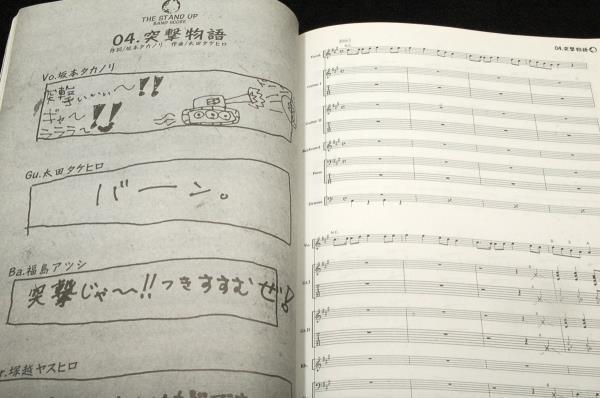 THE STAND UP
BAND SCORE
04.突撃物語
作詞/坂本タカノリ 作曲/太田タケヒロ
Vo.坂本タカノリ
突撃
ギャ〜!!
ラララ〜
Gu.太田タケヒロ
バーン。
Ba.福島アツシ
突撃じゃ〜!!つきすすむぜ!
r.塚越ヤスヒロ
04.突撃物語
Vocal
Guitar I
Guitar II
Keyboard
Bass
Drums
N.C.
Vo.
Gt.I
Gt.II
Kb.
Ba.